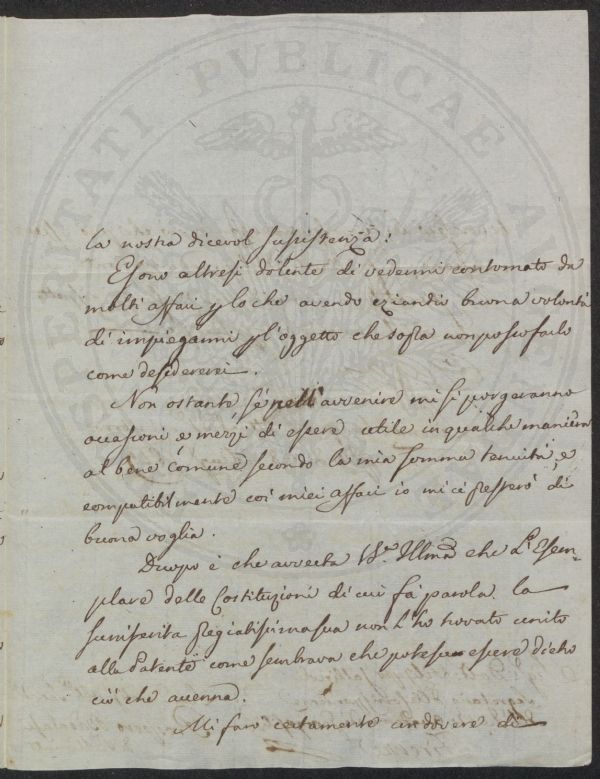 la nostra dicevol susistenza!
E sono altresi dolente di vedermi contornato da
molti affari p lo che avendo eziandio buona volontà
di impiegarmi p l'oggetto che sopra non posso farlo
come desidererei.
Non ostante, se nell'avvenire mi si porgeranno
occasioni e mezzi di essere utile in qualche maniera
al bene comune secondo la mia somma tenuità, e
compatibilmente coi miei affari io mi ci presterò di
buona voglia.
D'uopo è che avverta V.S. Illma che L'Esem-
plare delle Costituzioni di cui fà parola la
suriferita pregiatissima sua non L'ho trovato unito
alla Patente come sembrava che potesse essere dietro
ciò che accenna.
Mi farò certamente un dovere di
SPERITATI PVBLICAE AV